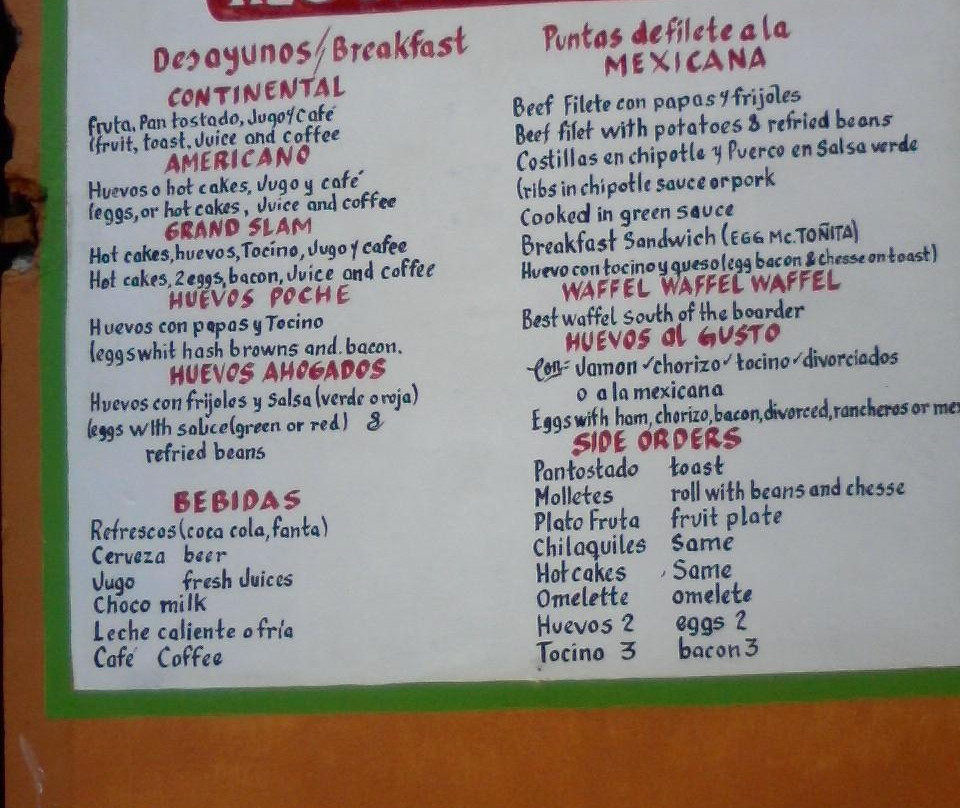 Desayunos/Breakfast
CONTINENTAL
fruta, Pan tostado, Jugo y Café
(fruit, toast, Juice and coffee
AMERICANO
Huevos o hot cakes, Jugo y café
(eggs, or hot cakes, Juice and coffee
GRAND SLAM
Hot cakes, huevos, Tocino, Jugo y cafee
Hot cakes, 2 eggs, bacon, Juice and coffee
HUEVOS POCHE
Huevos con papas y Tocino
(eggs whit hash browns and bacon.
HUEVOS AHOGADOS
Huevos con frijoles y Salsa (verde o roja)
(eggs with salice (green or red) &
refried beans
BEBIDAS
Refrescos (coca cola, fanta)
Cerveza beer
Jugo fresh Juices
Choco milk
Leche caliente o fría
Café Coffee
Puntas de filete a la
MEXICANA
Beef Filete con papas y frijoles
Beef filet with potatoes & refried beans
Costillas en chipotle y Puerco en Salsa verde
(ribs in chipotle sauce or pork
Cooked in green sauce
Breakfast Sandwich (EGG Mc.TOÑITA)
Huevo con tocino y queso (egg bacon & chesse on toast)
WAFFEL WAFFEL WAFFEL
Best waffel south of the boarder
HUEVOS al GUSTO
Con= Jamon ✓ chorizo ✓ tocino ✓ divorciados
o a la mexicana
Eggs with ham, chorizo, bacon, divorced, rancheros or mex
SIDE ORDERS
Pan tostado toast
Molletes roll with beans and chesse
Plato Fruta fruit plate
Chilaquiles Same
Hot cakes Same
Omelette omelete
Huevos 2 eggs 2
Tocino 3 bacon 3